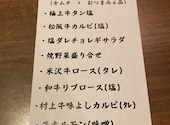 (キムチ + おつまみ6品)
・極上牛タン塩
・松阪牛カルビ(塩)
・塩ダレチョレギサラダ
・焼野菜盛り合せ
・米沢牛ロース(タレ)
・和牛リブロース(塩)
・村上牛味よしカルビ(タレ)